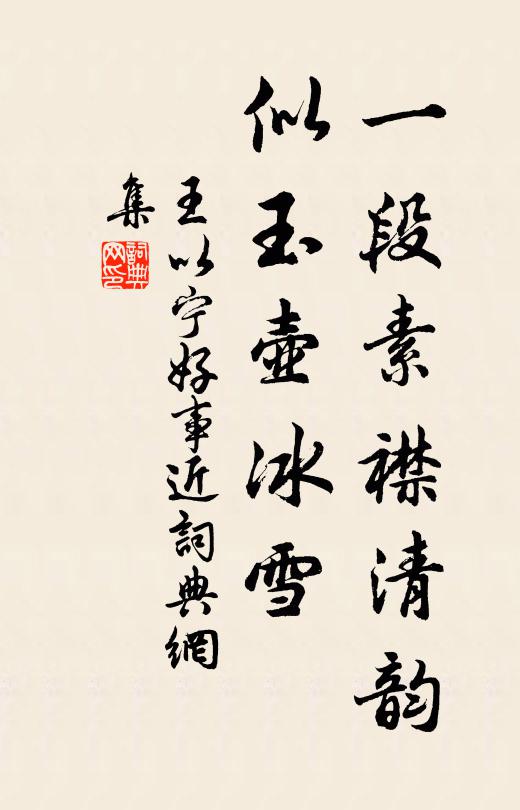 一段素襟清韵
似玉壺冰雪
王以宁好事近詞典網
集
詞典
网印